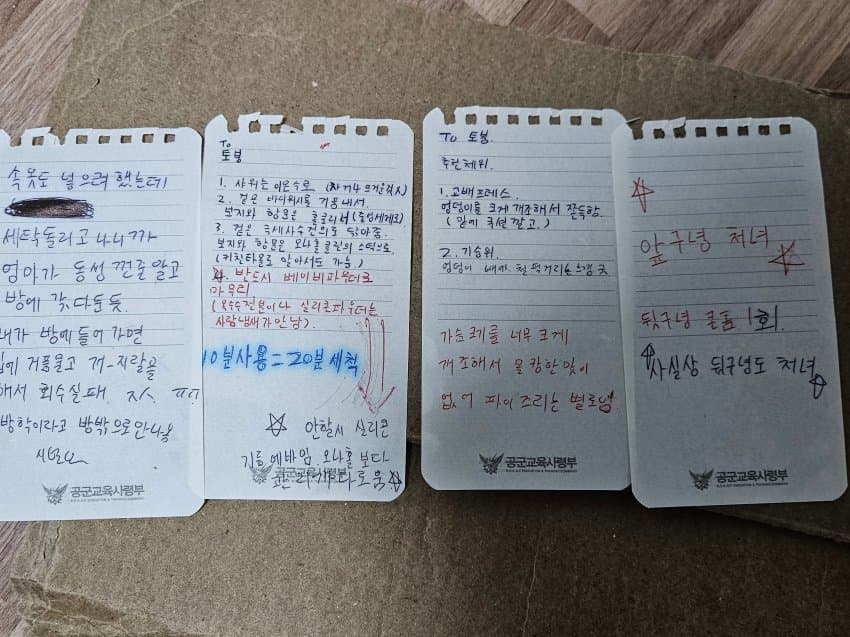 속옷도 넣으려 했는데
세탁돌리고 나니까
엄마가 동생 껀줄 알고
방에 갖다준듯.
내가 방에 들어가면
입에 거품물고 개-지랄을
해서 회수실패. ㅈㅅ ㅠㅠ
방학이라고 방밖으로 안나옴
공군교육사령부
To
토붕
1. 샤워는 미온수로
2. 겉은 바디워시를 거품내서.
보지와 항문은 홀클리너(중성세제로)
3. 겉은 극세사수건으로 닦아줌
보지와 항문은 오나홀클린의 스틱으로.
(키친타올로 말아서도 가능)
4. 반드시 베이비파우더로
마무리
(옥수수전분이나 실리콘파우더는
사람냄새가 안남).
10분사용=20분세척
☆ 안할시 실리콘
기름에바임 오나홀보다
관리 까다로움☆
공군교육사령부
To 토붕.
추천체위.
1. 교배프레스
엉덩이를 크게 개조해서 쫀득함.
(밑에 쿠션 깔고.)
2. 기승위.
엉덩이 배에 철떡거리는느낌 굿
가슴크기를 너무 크게
개조해서 물캉한 맛이
없어 파이즈리는 별로임
공군교육사령부
☆
앞구녕 처녀 ☆
뒷구녕 콘돔 1회.
☆사실상 뒷구녕도 처녀☆
공군교육사령부